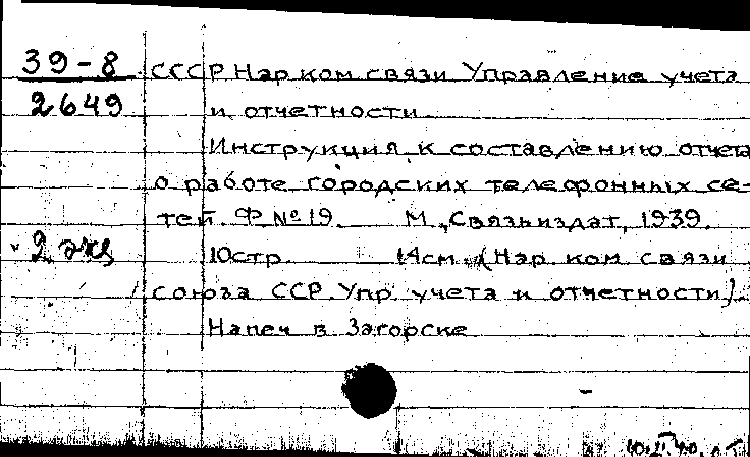 39-8 СССР, Нар ком связи Управление учета
2649 и отчетности
Инструкция к составлению отчета
о работе городских телефонных се-
тей. Ф №19. М., Связьиздат, 1939.
2 экз 10стр. 14см. (Нар. ком связи
союза ССР. Упр учета и отчетности).
Напеч в Загорске